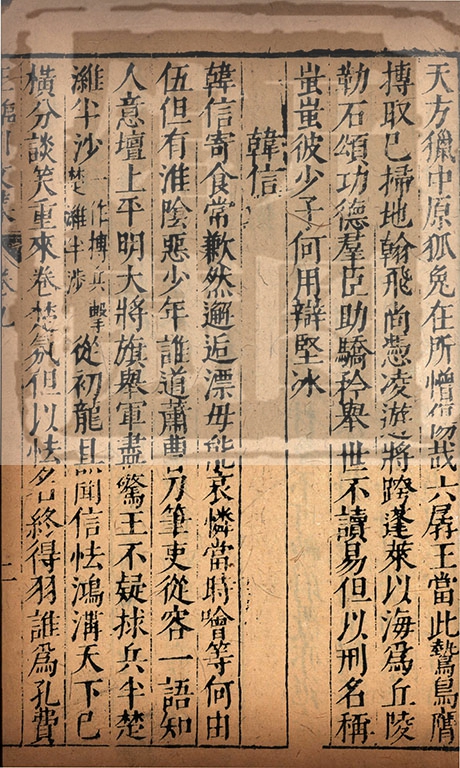 天方獵中原狐兔在所憎傷哉六孱王當此鷙鳥膺
搏取已掃地翰飛尚憑凌遊將跨蓬萊以海爲丘陵
勒石頌功德羣臣助驕矜舉世不讀易但以刑名稱
蚩蚩彼少子何用辯堅冰
韓信
韓信寄食常歉然邂逅漂母能哀憐當時噲等何由
伍但有淮陰惡少年誰道蕭曹刀筆吏從容一語知
人意壇上平明大將旗舉軍盡驚王不疑捄兵半楚
濰半沙一作摶兵擊楚濰半渉從初龍且聞信怯鴻溝天下已
橫分談笑重來卷楚氛但以怯名終得羽誰爲孔費
臨川文集 卷九